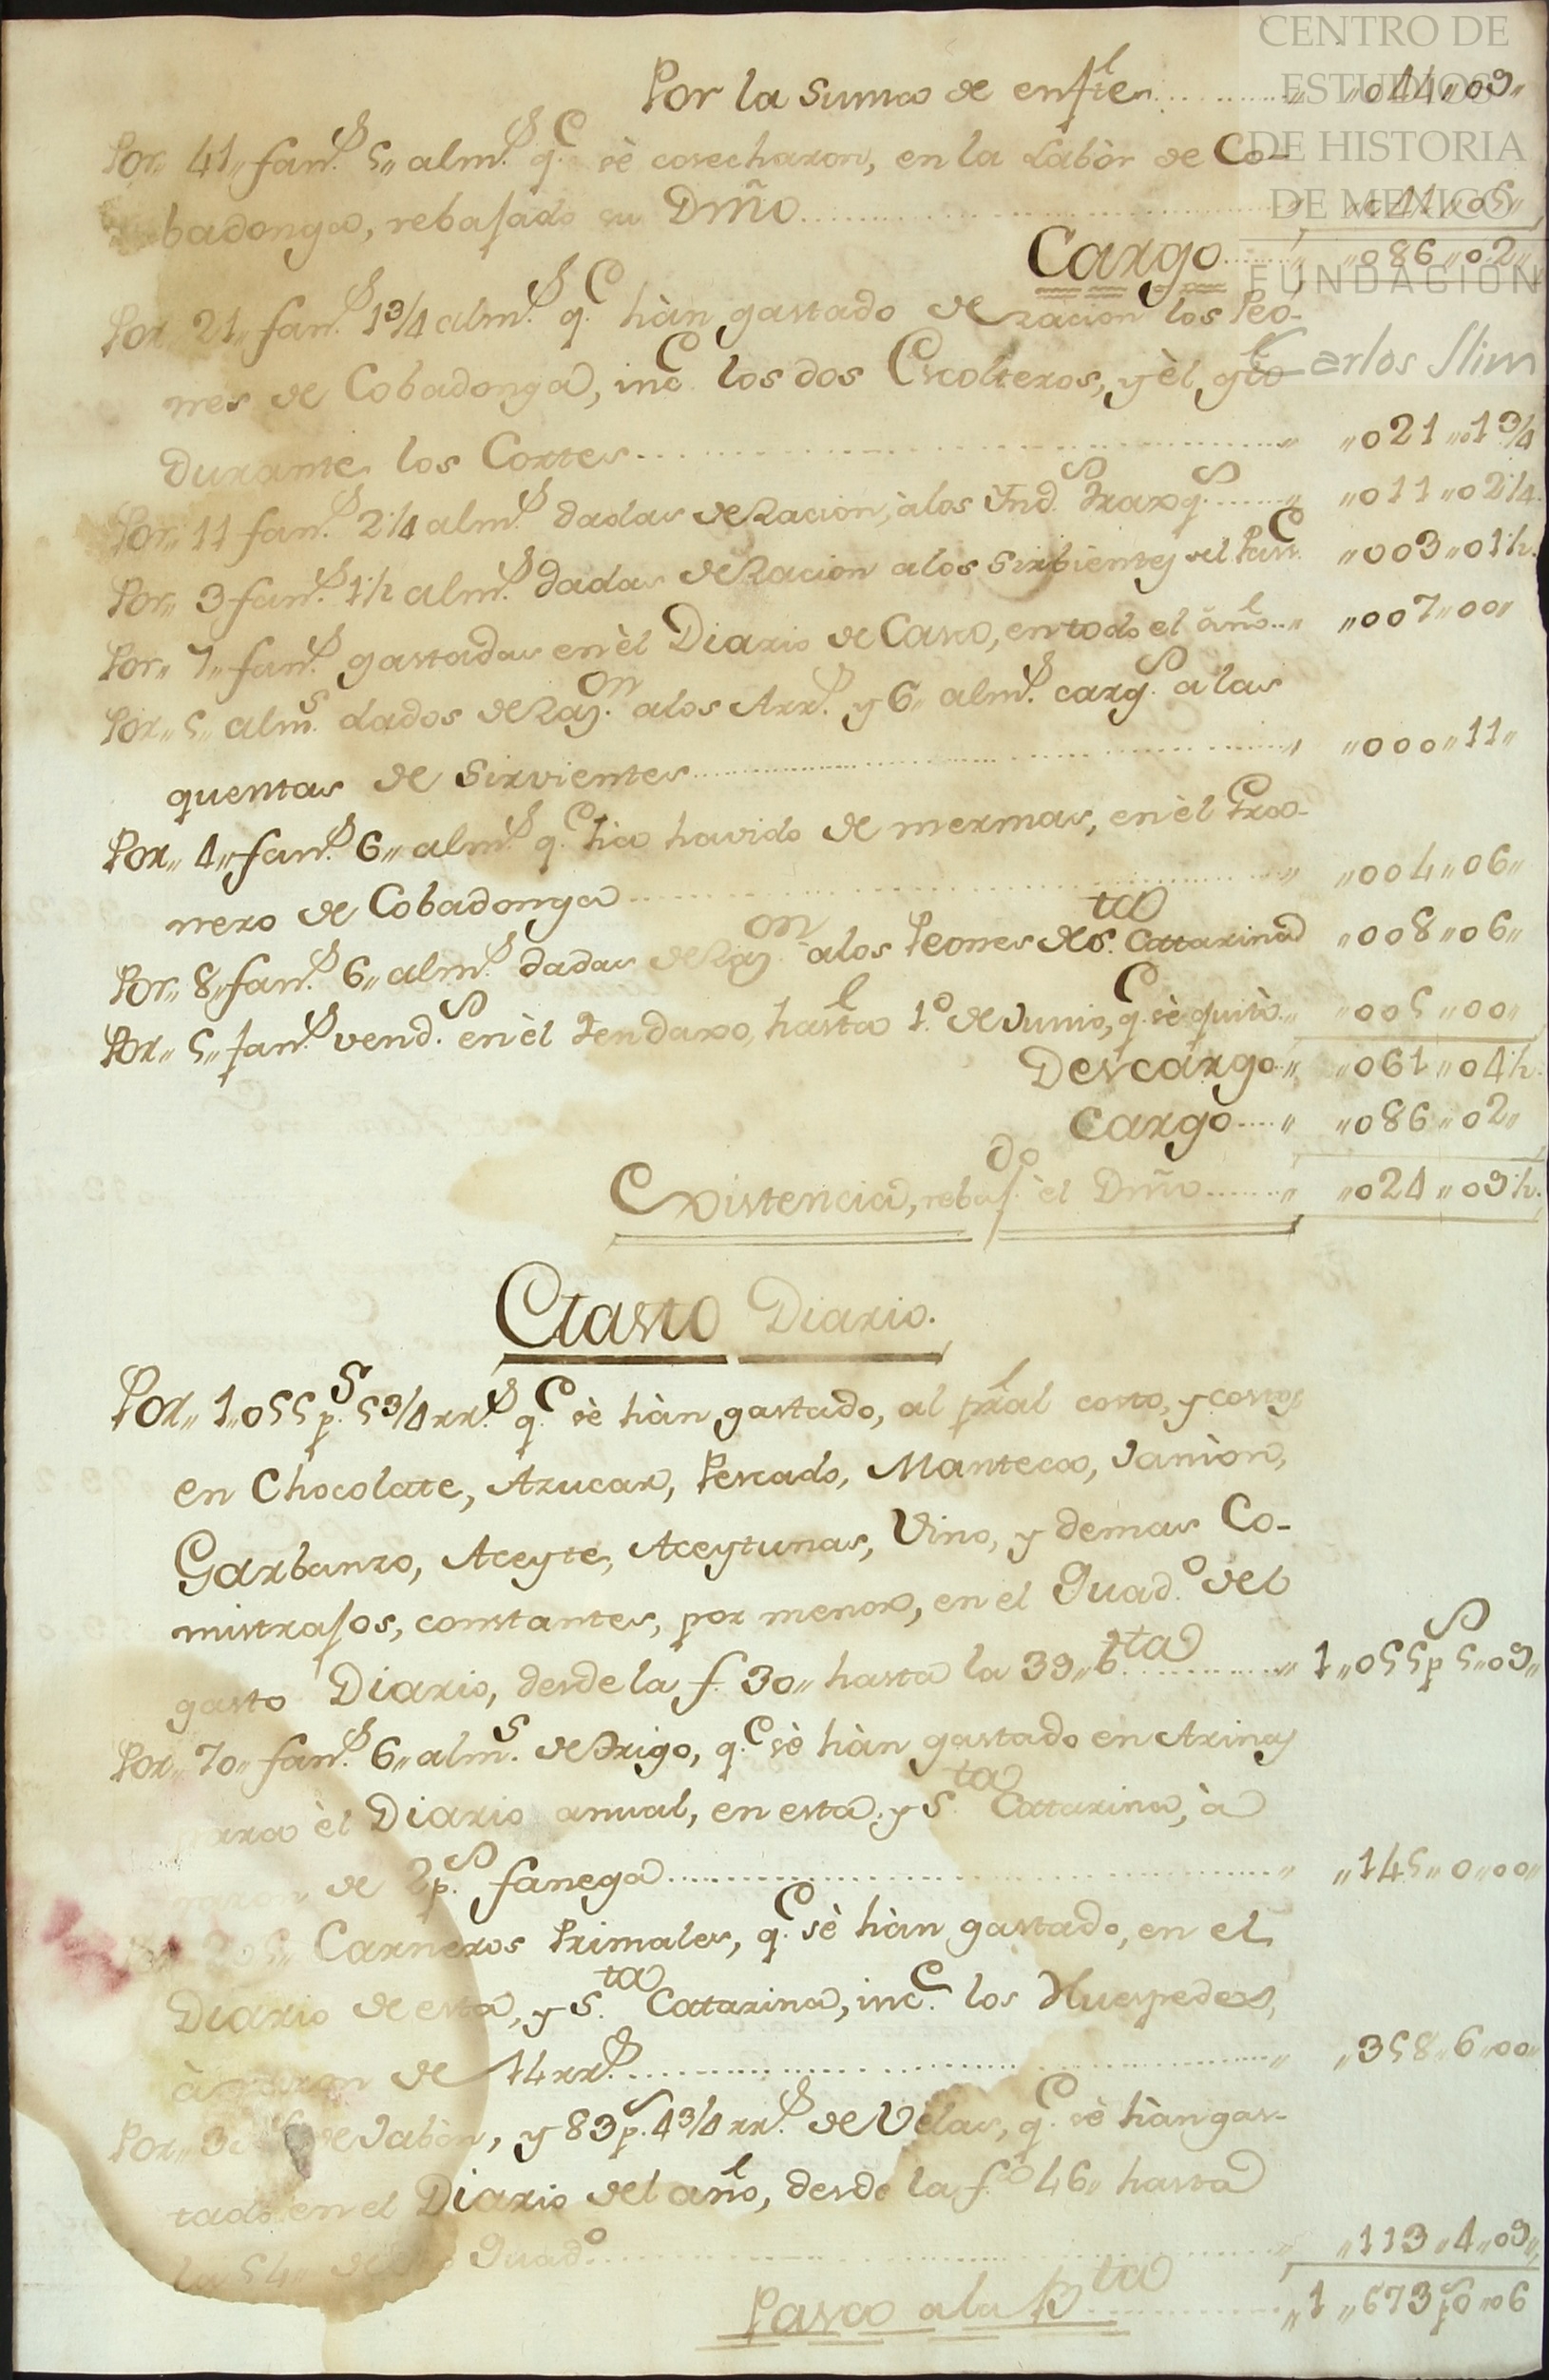 CENTRO DE
ESTUDIOS
DE HISTORIA
DE MEXICO
FUNDACION
Carlos Slim
Por la suma de enfte " "044"09"
Por 41" fans. 5" alms. qe. sè cosecharon, en la Labòr de Co-
badonga, rebajado su Dmõ " "041"05"
Cargo " "086"02"
Por 21" fans. 1 3/4 alms. qe. hàn gastado de racion los Peo-
nes de Cobadonga, ince. los dos Escolteros, y èl gto
durante los Cortes " "021"1 3/4
Por" 11 fans. 2 1/4 alms. dadas de Racion, à los Ynds. Trasqs. " "011"02 1/4
Por" 3 fans. 1 1/2 alms. dadas de Racion a los Sirbientes del "003"01 1/2
Por" 7" fans. gastadas en èl Diario de Casa, en todo el año " "007"00"
Por" 5" alms. dados de Raon. a los Arrs. y 6" alms. cargs. a las
quentas de Sirvientes " "000"11"
Por" 4" fans. 6" alms. qe. hà havido de mermas, en èl Gra-
nero de Cobadonga " "004"06"
Por" 8" fans. 6" alms. dadas de Raon. a los Peones de Sta. Catarina "008"06"
Por" 5" fans. vends. en èl Tendaxo, hasta 1o. de Junio, qe. sè quitò " "005"00"
Descargo " "061"04 1/2
Cargo " "086"02"
Existencia, rebajdo. èl Dmõ " "024"09 1/2
Gasto Diario.
Por" 1"055 ps. 5 3/4 rrs. qe. sè hàn gastado, al pral costo, y costos
en Chocolate, Azucar, Pescado, Manteca, Jamòn,
Garbanzo, Aceyte, Aceytunas, Vino, y demas Co-
mistrajos, constantes, por menor, en el Quado. del
gasto Diario, desde la f. 30" hasta la 39" bta " 1"055 ps 5"09"
Por" 70" fans. 6" alms. de Trigo, qe. sè hàn gastado en Arinas
para èl Diario anual, en esta, y Sta. Catarina, à
razon de 2 ps. fanega " "145"0"00"
Por 205" Carneros Primales, qe. sè hàn gastado, en el
Diario de esta, y Sta. Catarina, ince. los Huespedes,
à razon de 14 rrs. " "358"6"00"
Por" de Jabòn, y 83 ps. 4 3/4 rrs. de Velas, qe. sè hàn gas-
tado en el Diario del año, desde la fo 46" hasta
la 54" de dho Quado " "113"4"09"
Passa a la bta " "1"673 ps 0"06